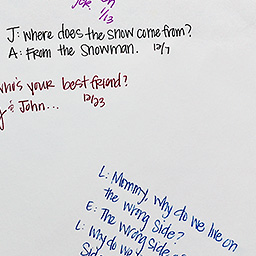 on
1/13
J: Where does the snow come from?
A: From the Snowman. 12/7
who's your best friend?
& John... 12/23
L: Mommy, Why do we live on
the wrong side?
E: The wrong side of
L: Why do we
Side